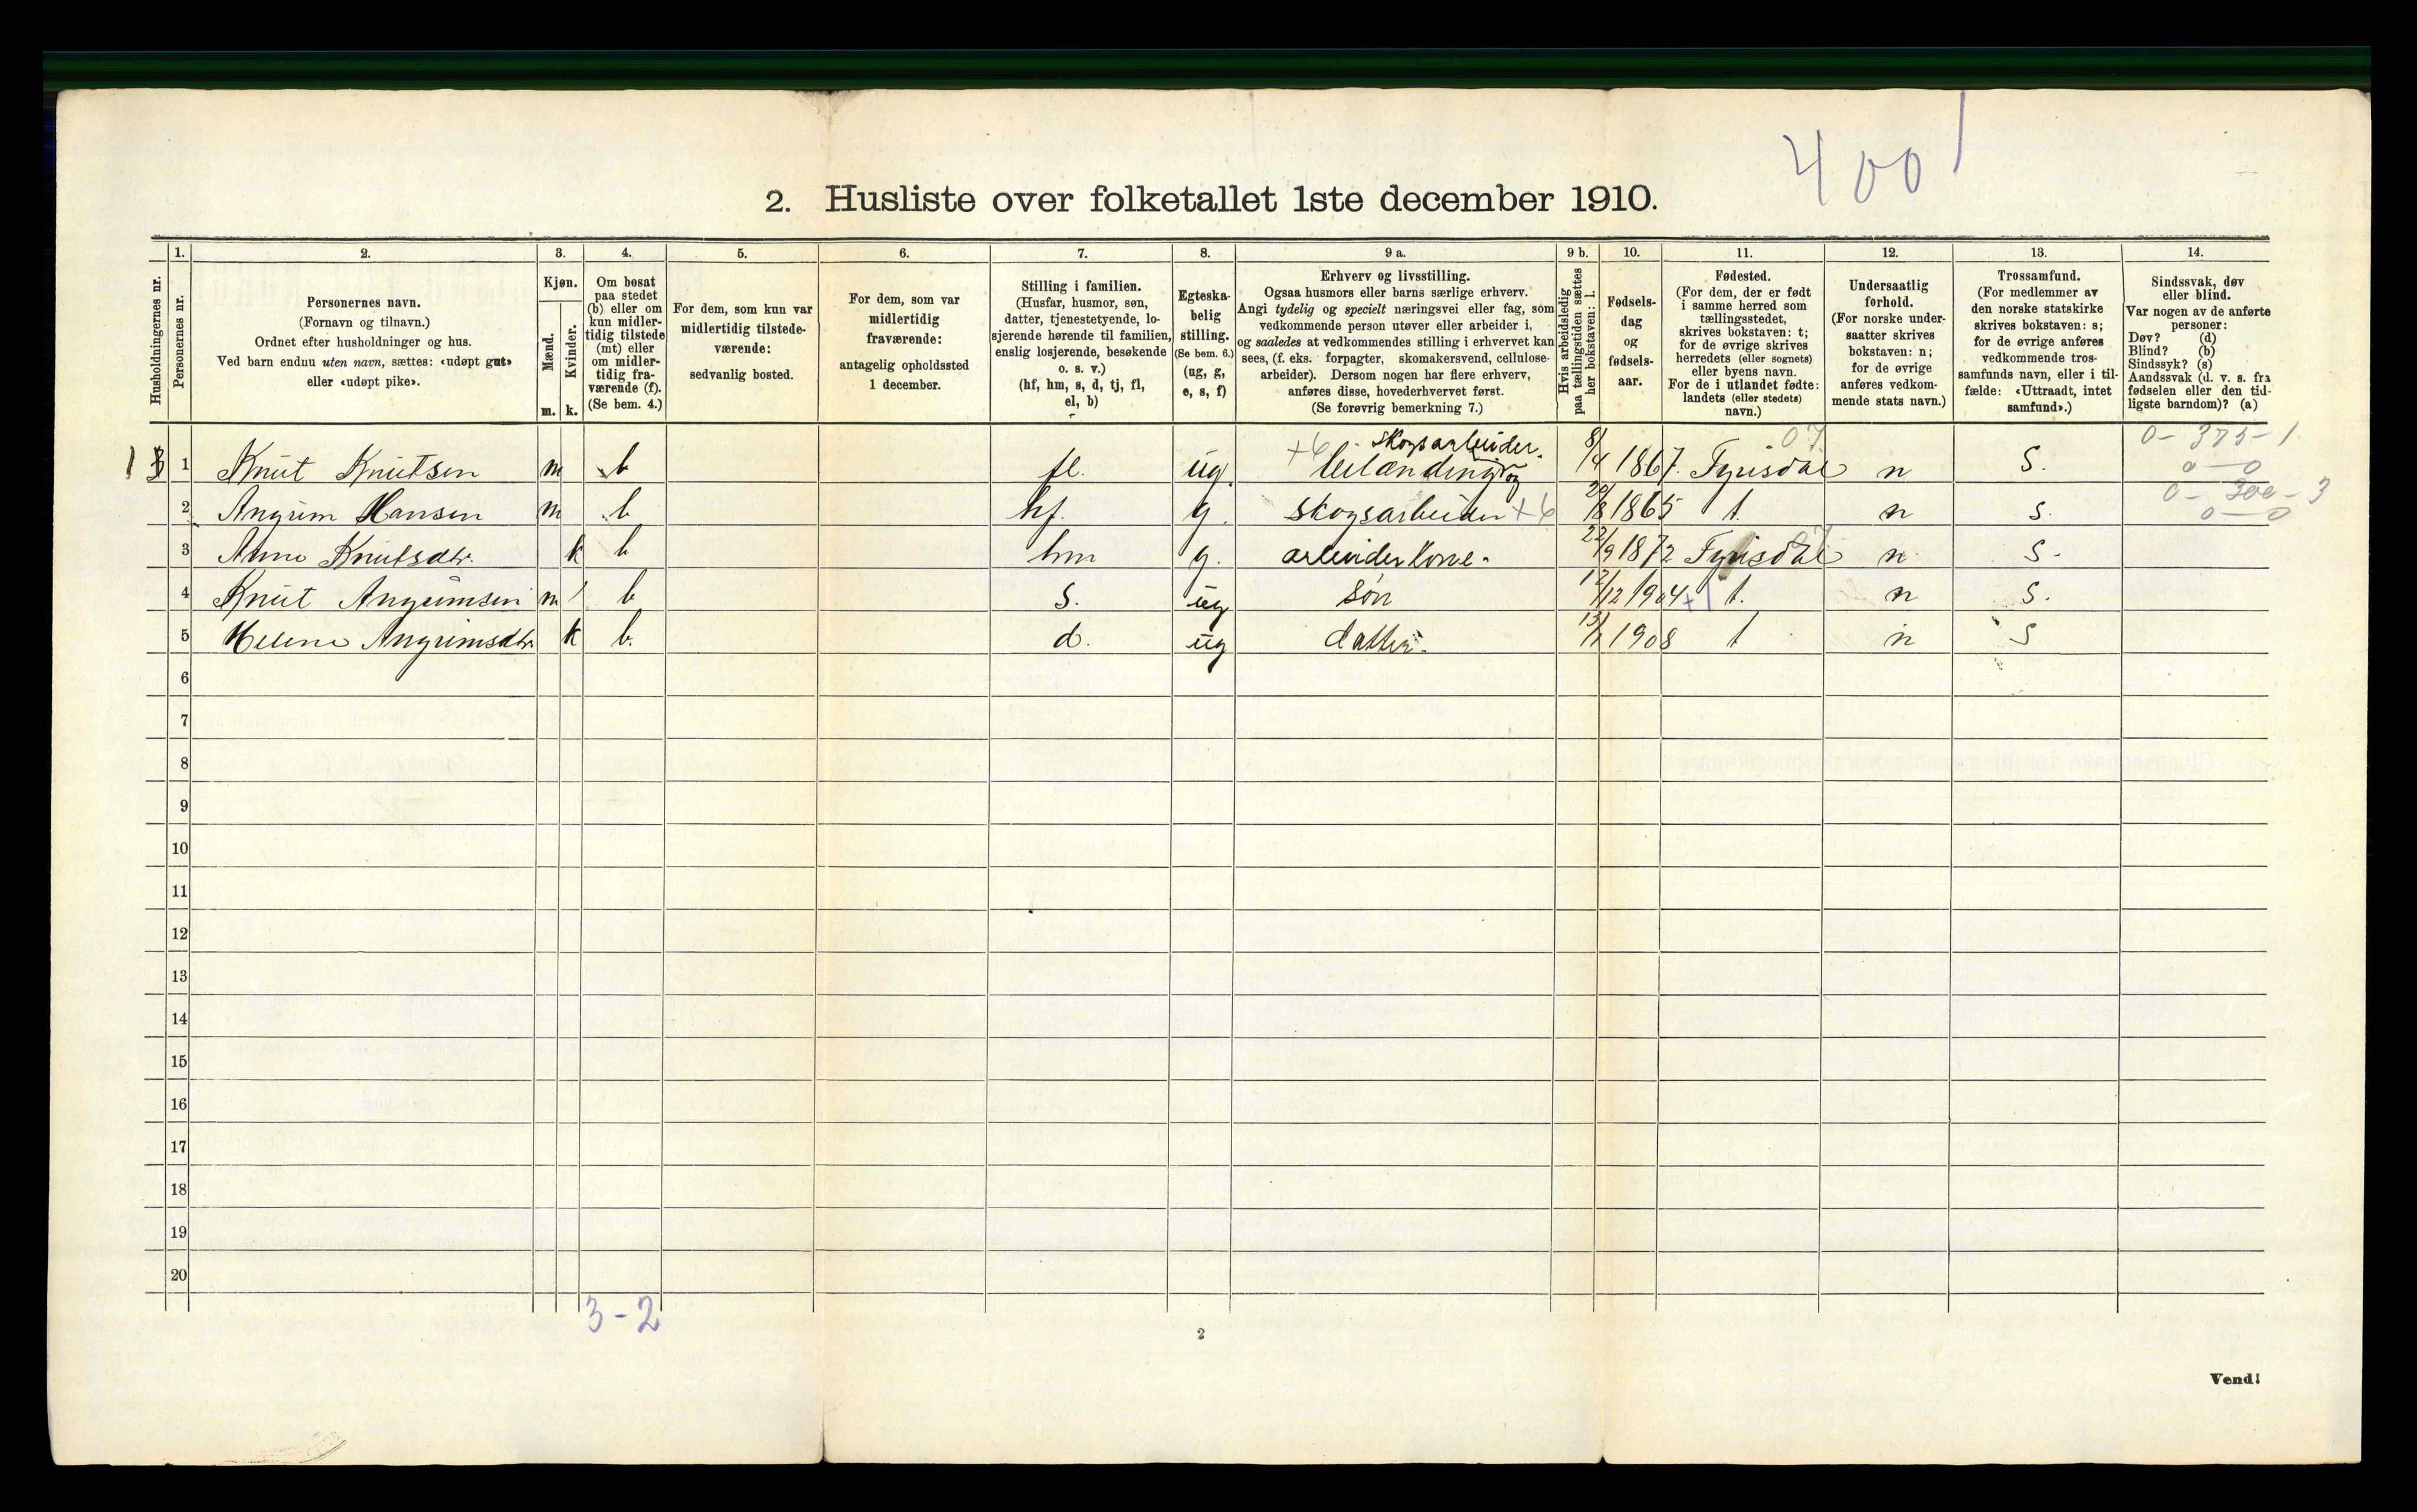 4001
2. Husliste over folketallet 1ste december 1910.
Husholdningernes nr.
1.
Personernes nr.
2.
Personernes navn.
(Fornavn og tilnavn.)
Ordnet efter husholdninger og hus.
Ved barn endnu uten navn, sættes: «udøpt gut»
eller «udøpt pike».
3.
Kjøn.
Mænd.
Kvinder.
m. k.
4.
Om bosat
paa stedet
(b) eller om
kun midler-
tidig tilstede
(mt) eller
om midler-
tidig fra-
værende (f).
(Se bem. 4.)
5.
For dem, som kun var
midlertidig tilstede-
værende:
sedvanlig bosted.
6.
For dem, som var
midlertidig
fraværende:
antagelig opholdssted
1 december.
7.
Stilling i familien.
(Husfar, husmor, søn,
datter, tjenestetyende, lo-
sjerende hørende til familien,
enslig losjerende, besøkende
o. s. v.)
(hf, hm, s, d, tj, fl,
el, b)
8.
Egteska-
belig
stilling.
(Se bem. 6.)
(ug, g,
e, s, f)
9 a.
Erhverv og livsstilling.
Ogsaa husmors eller barns særlige erhverv.
Angi tydelig og specielt næringsvei eller fag, som
vedkommende person utøver eller arbeider i,
og saaledes at vedkommendes stilling i erhvervet kan
sees, (f. eks. forpagter, skomakersvend, cellulose-
arbeider). Dersom nogen har flere erhverv,
anføres disse, hovederhvervet først.
(Se forøvrig bemerkning 7.)
9 b.
Hvis arbeidsledig
paa tællingstiden sættes
her bokstaven: l.
10.
Fødsels-
dag
og
fødsels-
aar.
11.
Fødested.
(For dem, der er født
i samme herred som
tællingsstedet,
skrives bokstaven: t;
for de øvrige skrives
herredets (eller sognets)
eller byens navn.
For de i utlandet fødte:
landets (eller stedets)
navn.)
12.
Undersaatlig
forhold.
(For norske under-
saatter skrives
bokstaven: n;
for de øvrige
anføres vedkom-
mende stats navn.)
13.
Trossamfund.
(For medlemmer av
den norske statskirke
skrives bokstaven: s;
for de øvrige anføres
vedkommende tros-
samfunds navn, eller i til-
fælde: «Uttraadt, intet
samfund».)
14.
Sindssvak, døv
eller blind.
Var nogen av de anførte
personer:
Døv? (d)
Blind? (b)
Sindssyk? (s)
Aandssvak (d. v. s. fra
fødselen eller den tid-
ligste barndom)? (a)
+6 skogsarbeider. 07 0-375-1
1 1 Knut Knutsen m b fl. ug. leilænding og 8/4 1867. Fyrisdal n S. 0-0
0-300-3
2 Angrim Hansen m b hf. g. skogsarbeider +6 20/8 1865 t. n s. 0-0
3 Anne Knutsdtr. k b hm g. arbeiderkone. 22/9 1872 Fyrisdal 07 n s.
4 Knut Angrimsen m b s. ug søn 12/12 1904 +1 t. n s.
5 Helene Angrimsdtr. k b. d. ug datter. 13/1 1908 t n s
6
7
8
9
10
11
12
13
14
15
16
17
18
19
20
3-2
2
Vend!